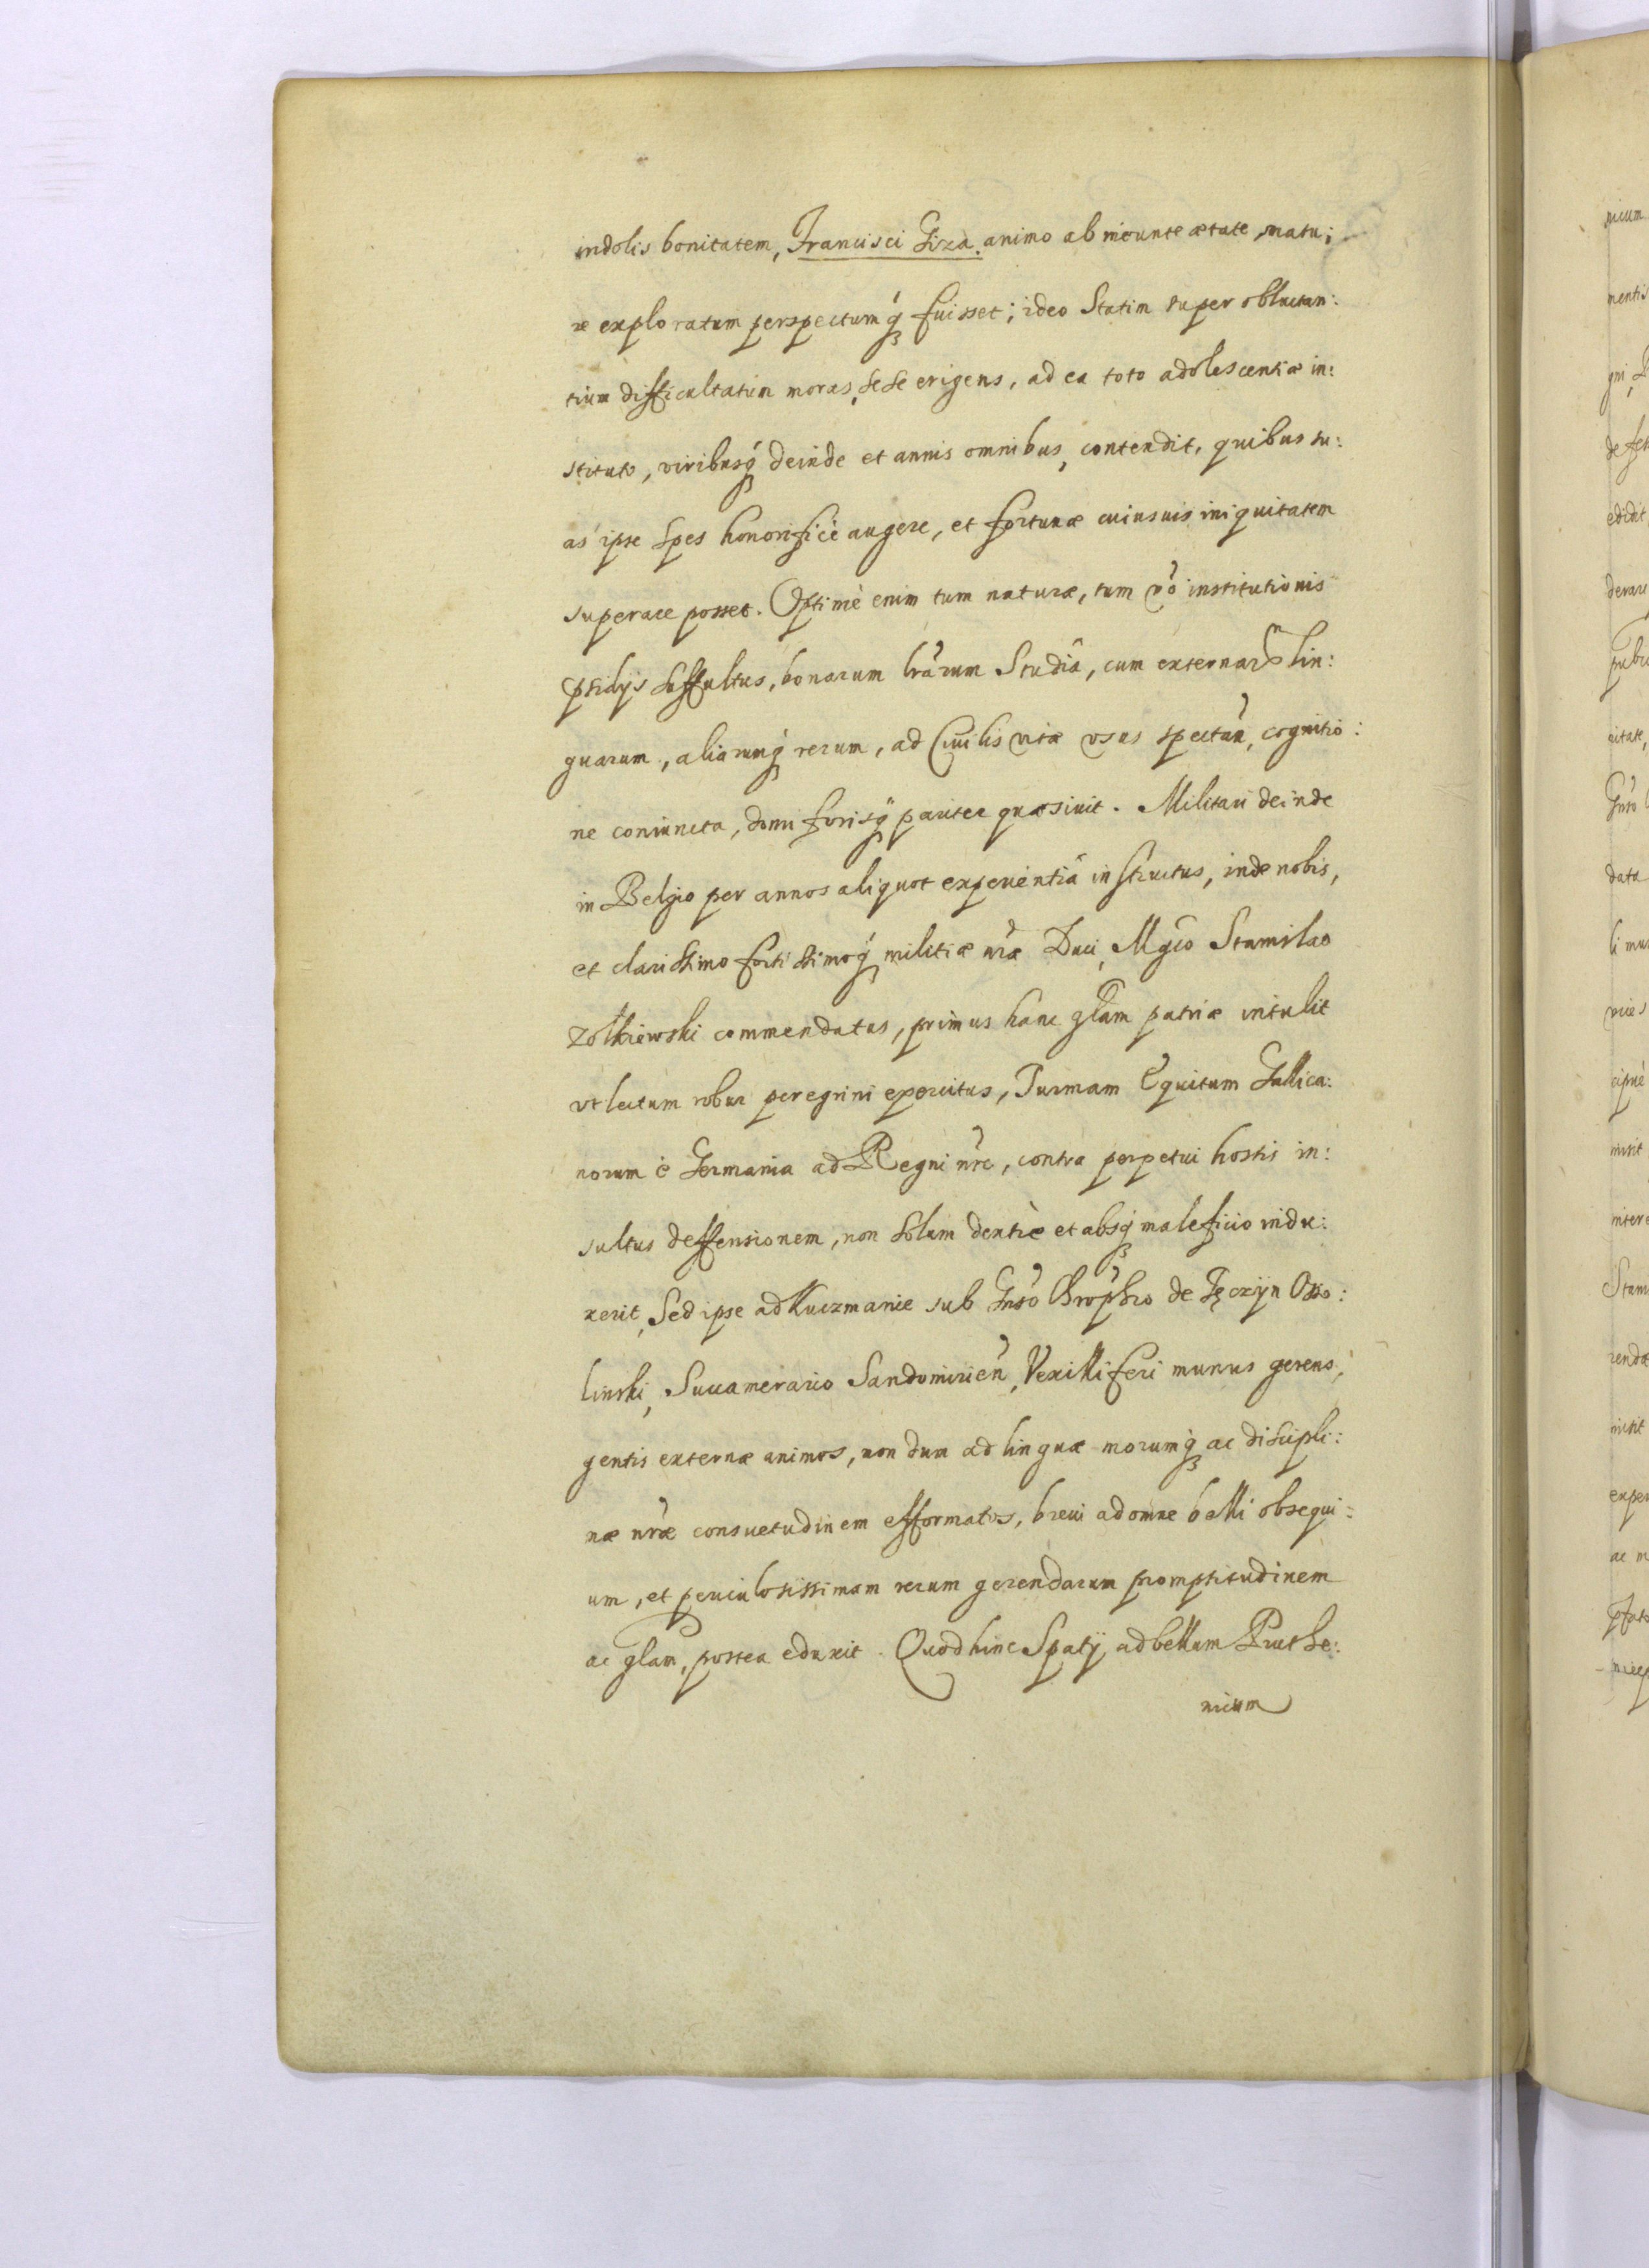 indolis bonitatem, Francisci Giza. animo ab ineunte ætate, matu:
re exploratum perspectumq́ꝫ fuisset; ideo Statim super obluctan:
tium difficultatum moras, sese erigens, ad ea toto adolescentiæ in:
stituto, viribusq́ꝫ deinde et annis omnibus, contendit, quibus su:
as ipse spes honorificè augere, et fortunæ cuiusuis iniquitatem
superare posset. Optimè enim tum naturæ, tum vő institutionis
pꝛsidijs suffultus, bonarum lrarum Studia, cum externarũ lin:
guarum, aliarumq́ꝫ rerum, ad Ciuilis vitæ vsus spectan̄, cognitio:
ne coniuncta, domi forisq́ꝫ pariter quæsiuit. Militari deinde
in Belgio per annos aliquot experientiâ instructus, inde nobis,
et clarissimo fortissimoq́ꝫ militiæ nr̄æ Duci, Mgc̄o Stanislao
Zolkiewski commendatus, primus hanc glām patriæ intulit
vt lectum robur peregrini exercitus, Turmam Equitum Gallica:
norum è Germania ad Regni nr̄i, contra perpetui hostis in:
sultus deffensionem, non solum decentèr et absq́ꝫ maleficio indu:
xerit, Sed ipse ad Kuczmanie sub Gnso Chrophro de Tęczyn Osso:
linski, Succamerario Sandomirien̄, Vexilliferi munus gerens,
gentis externæ animos, non dum ad linguæ morumq́ꝫ ac discipli:
næ nr̄æ consuetudinem efformatos, breui ad omne belli obsequi:
um, et periculosissimam rerum gerendarum promptitudinem
ac glām, postea eduxit. Quod hinc Spatij ad bellum Pruthe:
nicum